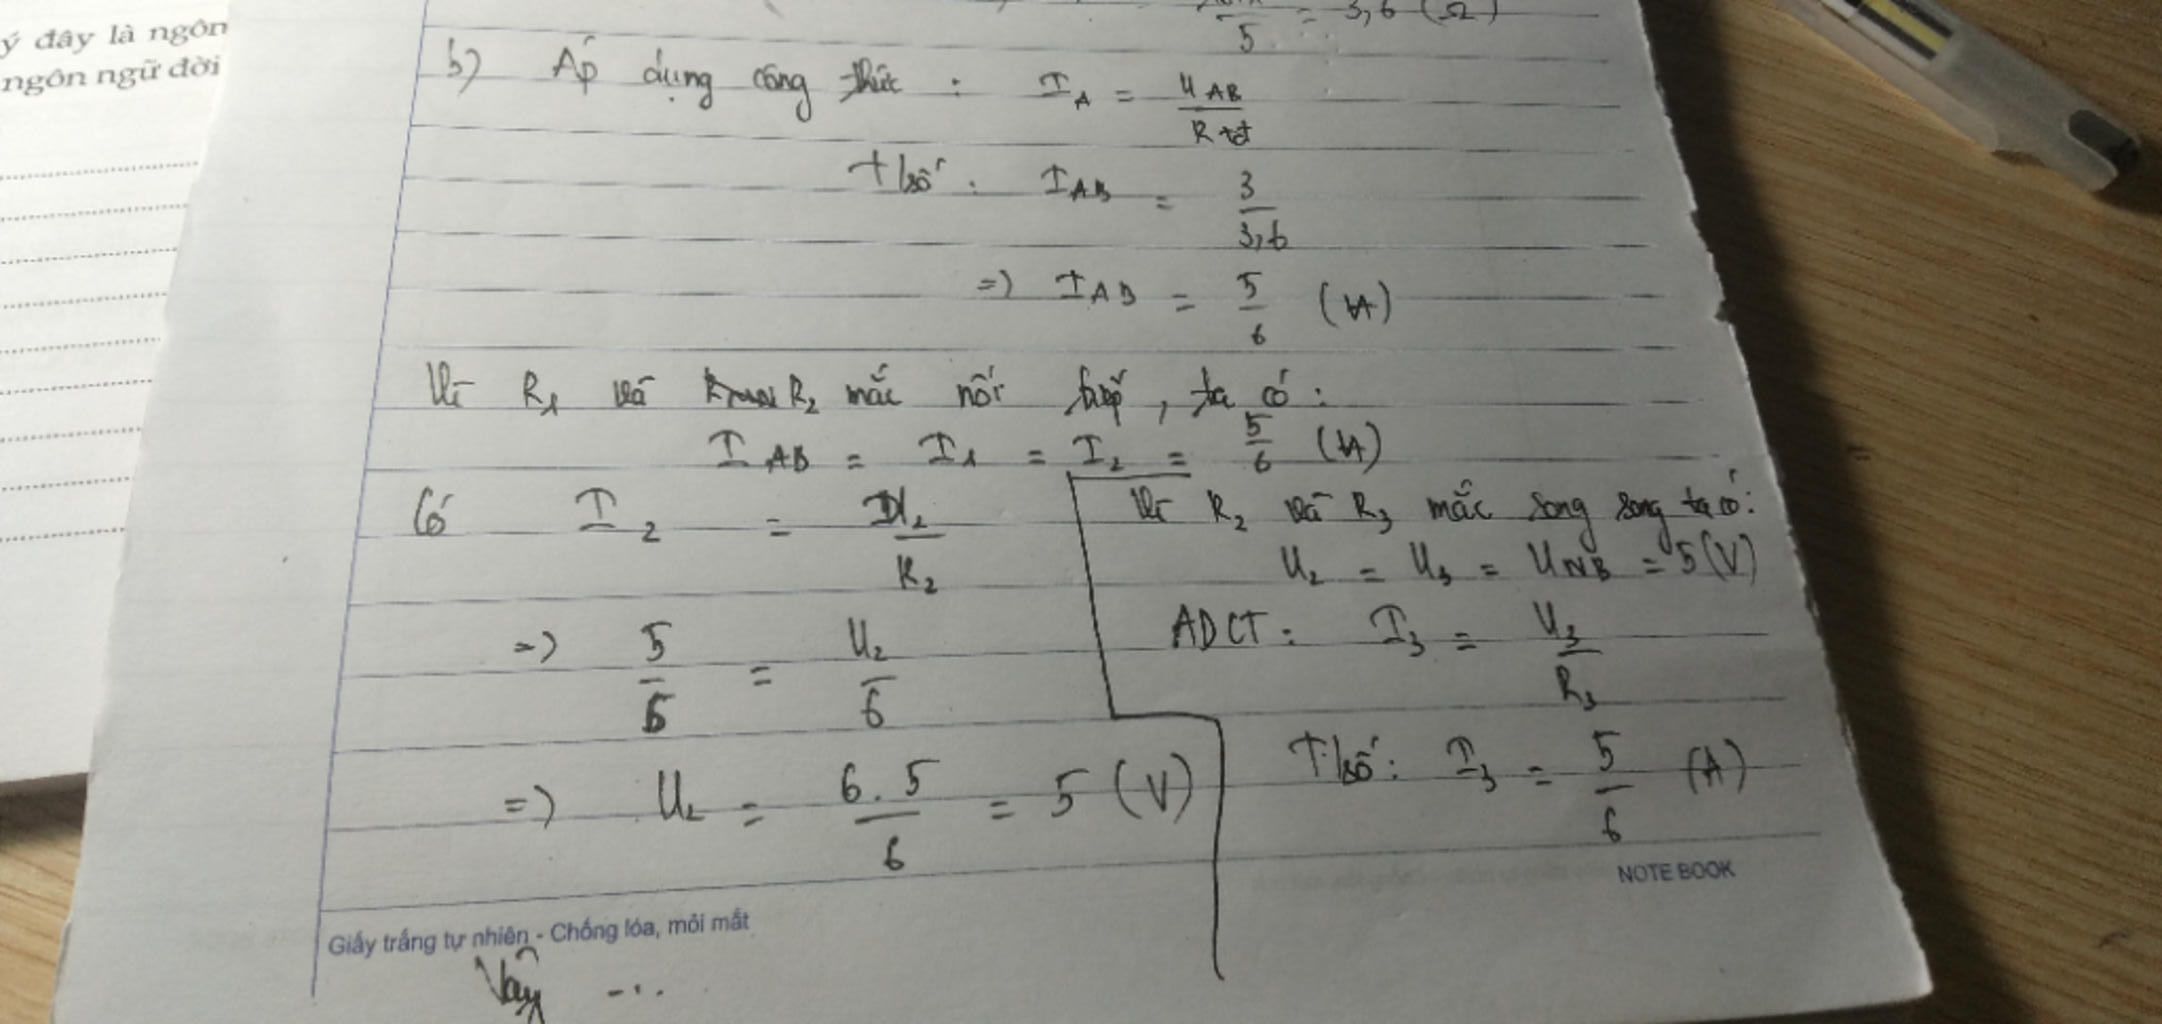 ý đây là ngôn
ngôn ngữ đời
5 = 3,6 (Ω)
b) Áp dụng công thức : I A = U AB / R tđ
T/số : I AB = 3 / 3,6
=) I AB = 5 / 6 (A)
Vì R1 và R2 mắc nối tiếp , ta có :
I AB = I1 = I2 = 5 / 6 (A)
Có I2 = U2 / R2
=) 5 / 6 = U2 / 6
=) U2 = 6 . 5 / 6 = 5 (V)
Vì R2 và R3 mắc song song ta có :
U2 = U3 = U NB = 5 (V)
ADCT : I3 = U3 / R3
T/số : I3 = 5 / 6 (A)
NOTE BOOK
Giấy trắng tự nhiên - Chống lóa, mỏi mắt
Vậy ...